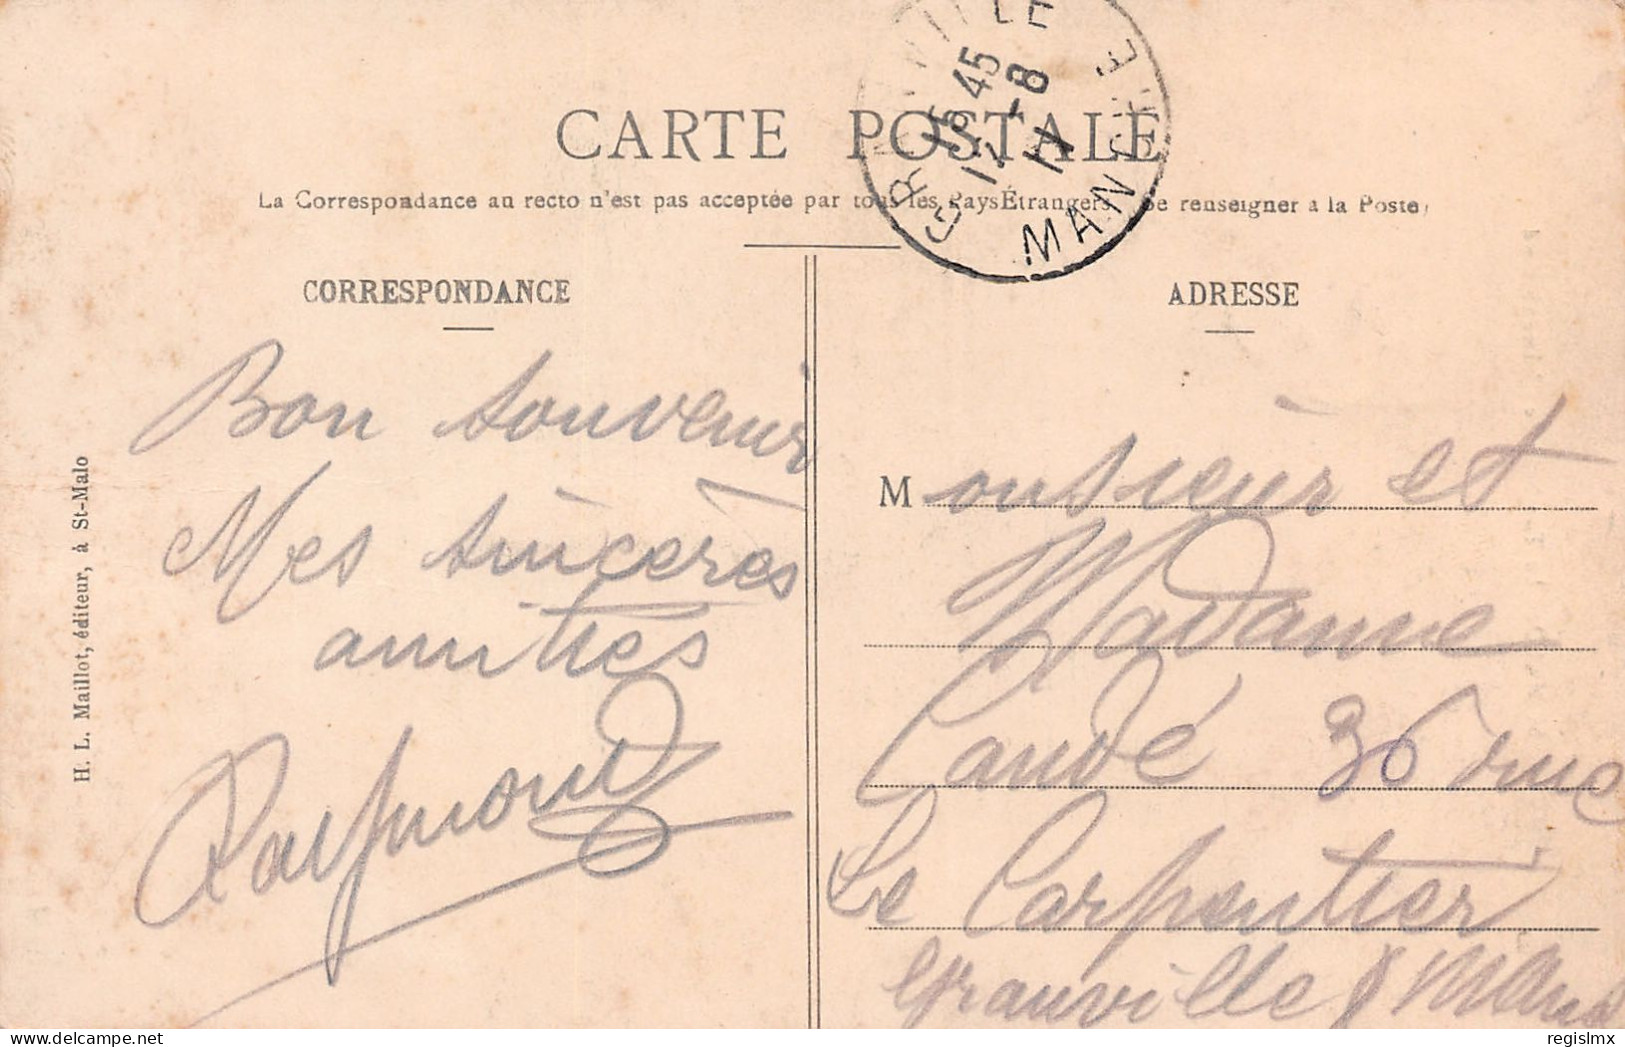 CARTE POSTALE
La Correspondance au recto n'est pas acceptée par tous les Pays Étrangers Se renseigner à la Poste
GRANVILLE
16 45
17 -8
11
MANCHE
CORRESPONDANCE
Bon souvenir
Mes sincères
amitiés
Raymond
H. L. Maillot, éditeur, à St-Malo
ADRESSE
Monsieur et
Madame
Candé 36 rue
Le Carpentier
Granville
delcampe.net
regislmx